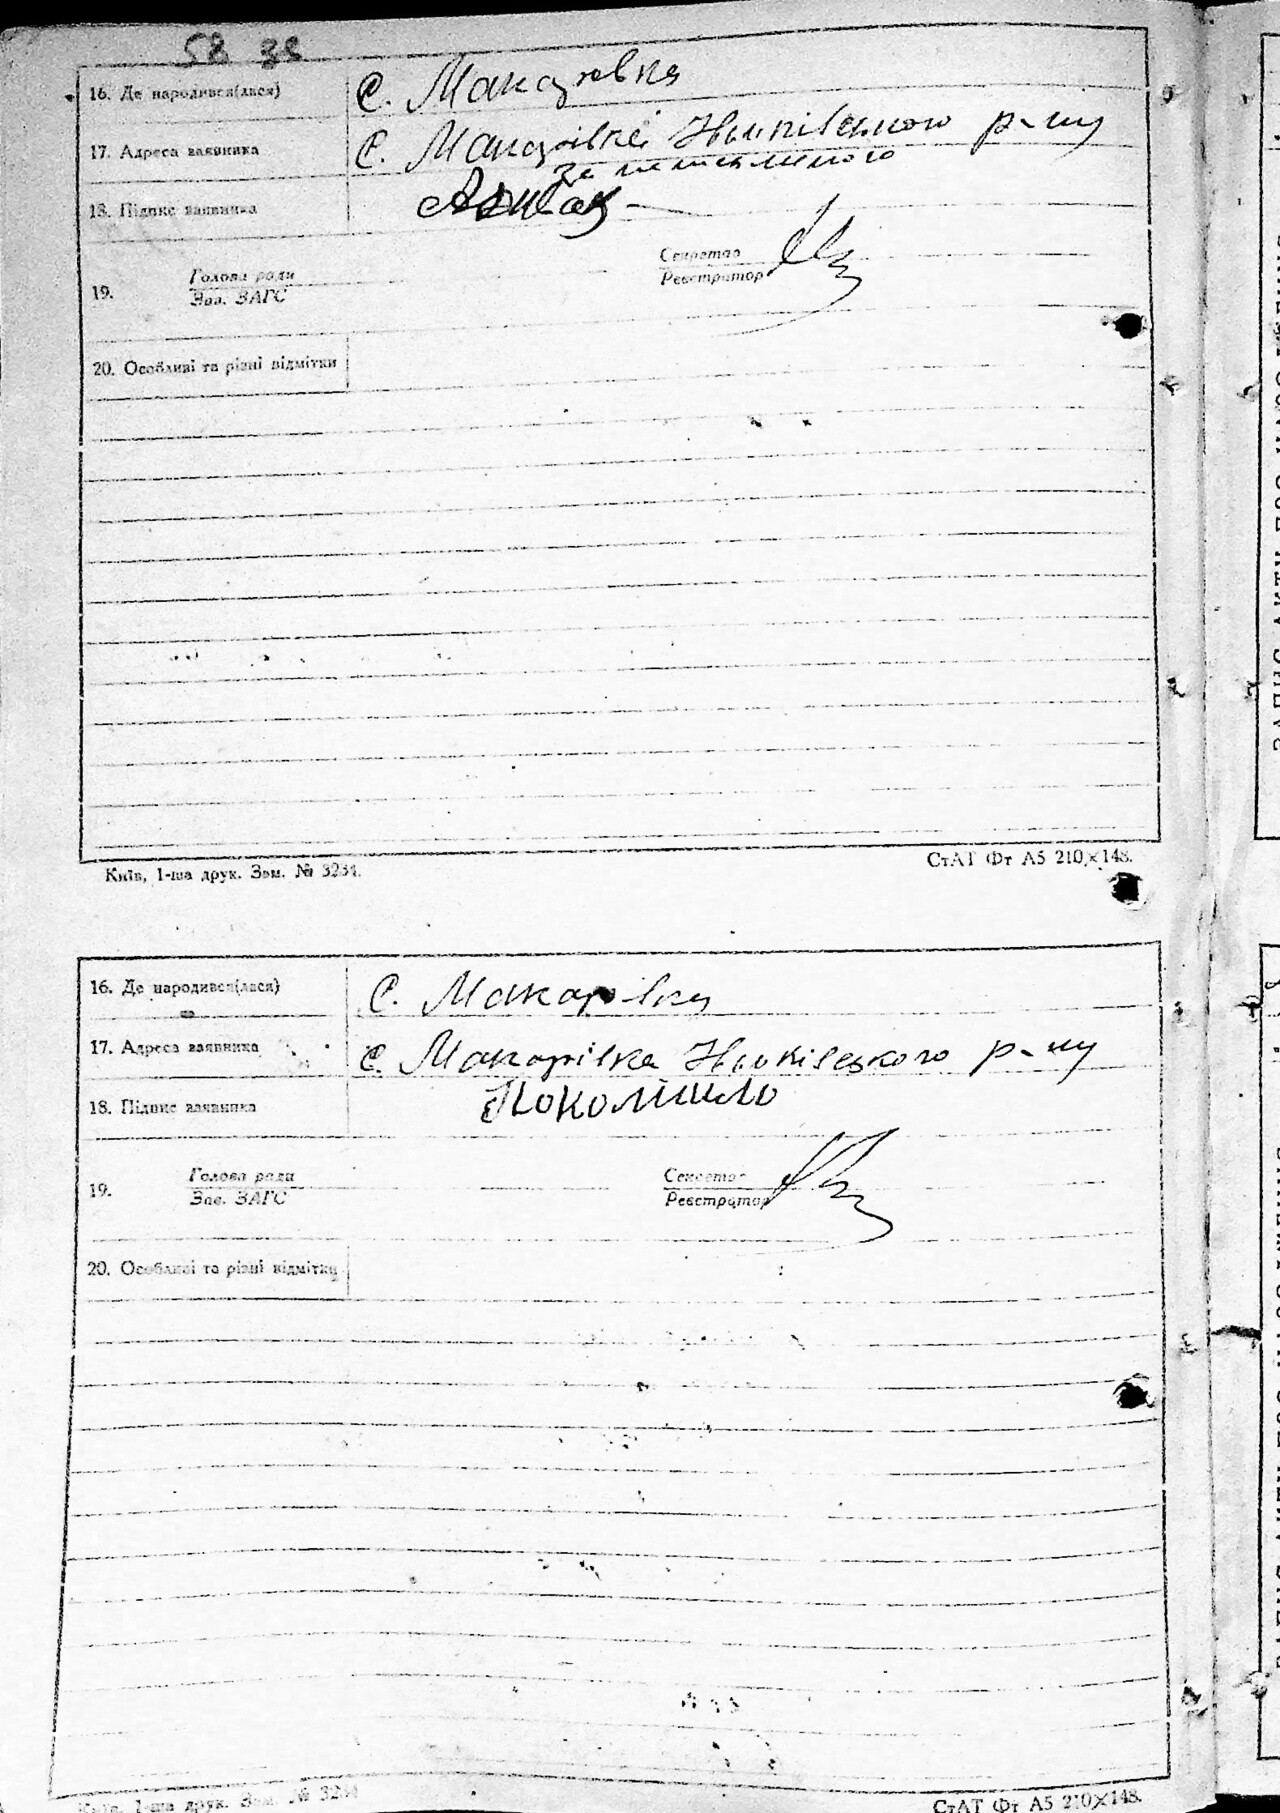 58 38
16. Де народився(лася) С. Макарівка
17. Адреса заявника С. Макарівка р-ну
за неписьменого
18. Підпис заявника
Секретар
Голова ради
Реєстратор
19. Зав. ЗАГС
20. Особливі та різні відмітки
Київ, 1-ша друк. Зам. № 3234. СтАТ Фт А5 210×148.
16. Де народився(лася) С. Макарівка
17. Адреса заявника С. Макарівка р-ну
18. Підпис заявника
Голова ради Секретар
19. Зав. ЗАГС Реєстратор
20. Особливі та різні відмітки
Київ, 1-ша друк. Зам. № 3234 СтАТ Фт А5 210×148.